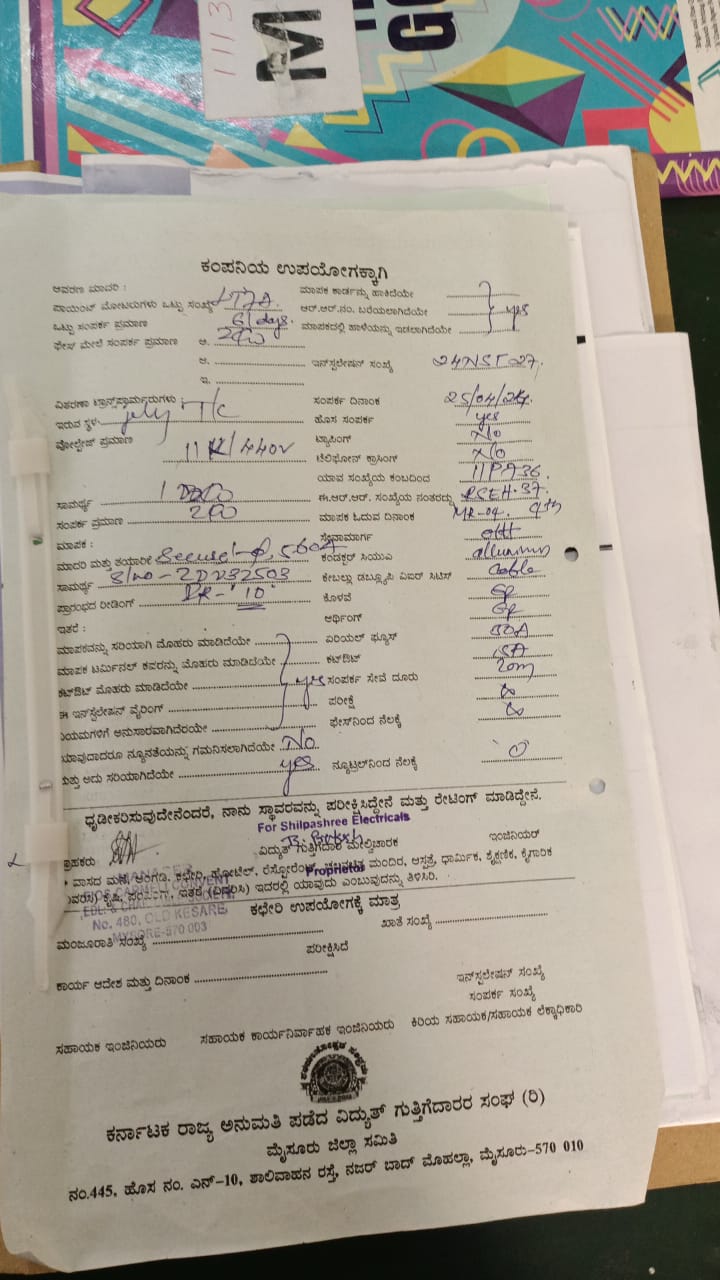 1113
M
GO
ಕಂಪನಿಯ ಉಪಯೋಗಕ್ಕಾಗಿ
ಆವರಣ ಮಾದರಿ :
ಮಾಪಕ ಕಾರ್ಡನ್ನು ಹಾಕಿದೆಯೇ
ಪಾಯಿಂಟ್ ಮೋಟರುಗಳು ಒಟ್ಟು ಸಂಖ್ಯೆ
ಆರ್.ಆರ್.ನಂ. ಬರೆಯಲಾಗಿದೆಯೇ yes
ಒಟ್ಟು ಸಂಪರ್ಕ ಪ್ರಮಾಣ 6 days.
ಮಾಪಕದಲ್ಲಿ ಹಾಳೆಯನ್ನು ಇಡಲಾಗಿದೆಯೇ
ಫೇಸ್ ಮೇಲೆ ಸಂಪರ್ಕ ಪ್ರಮಾಣ ಅ.
ಆ. ಇನ್‌ಸ್ಟಲೇಷನ್ ಸಂಖ್ಯೆ 24NST27.
ಇ.
ವಿತರಣಾ ಟ್ರಾನ್ಸ್‌ಫಾರ್ಮರುಗಳು : ಸಂಪರ್ಕ ದಿನಾಂಕ 25/04/24.
ಇರುವ ಸ್ಥಳ T/C ಹೊಸ ಸಂಪರ್ಕ yes
ವೋಲ್ಟೇಜ್ ಪ್ರಮಾಣ ಟ್ಯಾಪಿಂಗ್ No
11K/440V ಟೆಲಿಫೋನ್ ಕ್ರಾಸಿಂಗ್ No
ಯಾವ ಸಂಖ್ಯೆಯ ಕಂಬದಿಂದ 11PA36.
ಸಾಮರ್ಥ್ಯ ಈ.ಆರ್.ಆರ್. ಸಂಖ್ಯೆಯ ನಂತರದ್ದು RSEH.37.
ಸಂಪರ್ಕ ಪ್ರಮಾಣ ಮಾಪಕ ಓದುವ ದಿನಾಂಕ MR-04. 9th
ಮಾಪಕ : ಸೇವಾಮಾರ್ಗ
ಮಾದರಿ ಮತ್ತು ತಯಾರಿಕೆ Secure ಕಂಡಕ್ಟರ್ ಸಿಯುಎ
ಸಾಮರ್ಥ್ಯ S/no-2DV32503 ಕೇಬಲ್ಲು ಡಬ್ಲ್ಯೂಪಿ ವಿಐಆರ್ ಸಿಟಿಸ್ Cable
ಪ್ರಾರಂಭದ ರೀಡಿಂಗ್ "10" ಕೊಳವೆ GP
ಇತರೆ : ಅರ್ಥಿಂಗ್ GP
ಮಾಪಕವನ್ನು ಸರಿಯಾಗಿ ಮೊಹರು ಮಾಡಿದೆಯೇ ಏರಿಯಲ್ ಫ್ಯೂಸ್ 30A
ಮಾಪಕ ಟರ್ಮಿನಲ್ ಕವರನ್ನು ಮೊಹರು ಮಾಡಿದೆಯೇ ಕಟ್‌ಔಟ್ 15A
ಕಟ್‌ಔಟ್ ಮೊಹರು ಮಾಡಿದೆಯೇ yes ಸಂಪರ್ಕ ಸೇವೆ ದೂರು 20m
ಈ ಇನ್‌ಸ್ಟಲೇಷನ್ ವೈರಿಂಗ್ ಪರೀಕ್ಷೆ
ನಿಯಮಗಳಿಗೆ ಅನುಸಾರವಾಗಿದೆಯೇ ಫೇಸ್‌ನಿಂದ ನೆಲಕ್ಕೆ
ಯಾವುದಾದರೂ ನ್ಯೂನತೆಯನ್ನು ಗಮನಿಸಲಾಗಿದೆಯೇ No
ಮತ್ತು ಅದು ಸರಿಯಾಗಿದೆಯೇ yes ನ್ಯೂಟ್ರಲ್‌ನಿಂದ ನೆಲಕ್ಕೆ "0"
ಧೃಡೀಕರಿಸುವುದೇನೆಂದರೆ, ನಾನು ಸ್ಥಾವರವನ್ನು ಪರೀಕ್ಷಿಸಿದ್ದೇನೆ ಮತ್ತು ರೇಟಿಂಗ್ ಮಾಡಿದ್ದೇನೆ.
For Shilpashree Electricals
ಗ್ರಾಹಕರು ವಿದ್ಯುತ್ ಗುತ್ತಿಗೆದಾರ ಮೇಲ್ವಿಚಾರಕ ಇಂಜಿನಿಯರ್
* ವಾಸದ ಮನೆ, ಅಂಗಡಿ, ಕಛೇರಿ, ಹೋಟೆಲ್, ರೆಸ್ಟೋರೆಂಟ್, ಚಲನಚಿತ್ರ ಮಂದಿರ, ಆಸ್ಪತ್ರೆ, ಧಾರ್ಮಿಕ, ಶೈಕ್ಷಣಿಕ, ಕೈಗಾರಿಕೆ
Proprietor
ಕೃಷಿ, ಪಂಪಿಂಗ್, ಇತರೆ (ವಿವರಿಸಿ) ಇದರಲ್ಲಿ ಯಾವುದು ಎಂಬುವುದನ್ನು ತಿಳಿಸಿರಿ.
MANAGER
CARMEL CONVENT
EDL. & CHARITABLE SOCIETY
No. 480, OLD KESARE
MYSORE-570 003
ಕಛೇರಿ ಉಪಯೋಗಕ್ಕೆ ಮಾತ್ರ
ಮಂಜೂರಾತಿ ಸಂಖ್ಯೆ ಖಾತೆ ಸಂಖ್ಯೆ
ಪರೀಕ್ಷಿಸಿದೆ
ಕಾರ್ಯ ಆದೇಶ ಮತ್ತು ದಿನಾಂಕ ಇನ್‌ಸ್ಟಲೇಷನ್ ಸಂಖ್ಯೆ
ಸಂಪರ್ಕ ಸಂಖ್ಯೆ
ಸಹಾಯಕ ಇಂಜಿನಿಯರು ಸಹಾಯಕ ಕಾರ್ಯನಿರ್ವಾಹಕ ಇಂಜಿನಿಯರು ಕಿರಿಯ ಸಹಾಯಕ/ಸಹಾಯಕ ಲೆಕ್ಕಾಧಿಕಾರಿ
ಕರ್ನಾಟಕ ರಾಜ್ಯ ಅನುಮತಿ ಪಡೆದ ವಿದ್ಯುತ್ ಗುತ್ತಿಗೆದಾರರ ಸಂಘ (ರಿ)
ಮೈಸೂರು ಜಿಲ್ಲಾ ಸಮಿತಿ
ನಂ.445, ಹೊಸ ನಂ. ಎನ್-10, ಶಾಲಿವಾಹನ ರಸ್ತೆ, ನಜರ್ ಬಾದ್ ಮೊಹಲ್ಲಾ, ಮೈಸೂರು-570 010